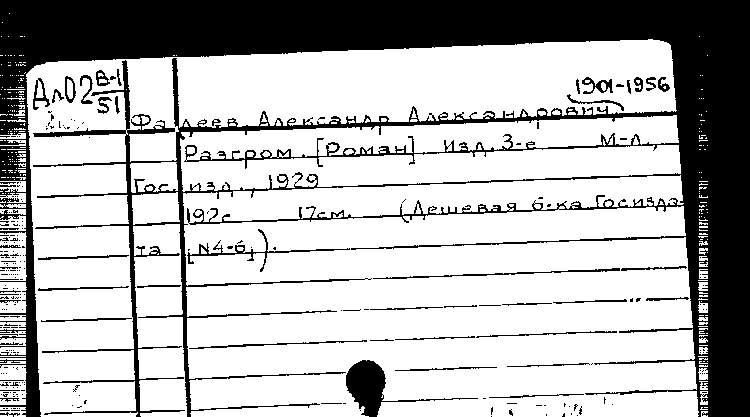 Дл02 В-1/51
1901-1956
Фадеев, Александр Александрович,
Разгром. [Роман]. Изд. 3-е М-Л.,
Гос. изд., 1929
192с 17см. (Дешевая б-ка Госизда-
та [N4-6]).